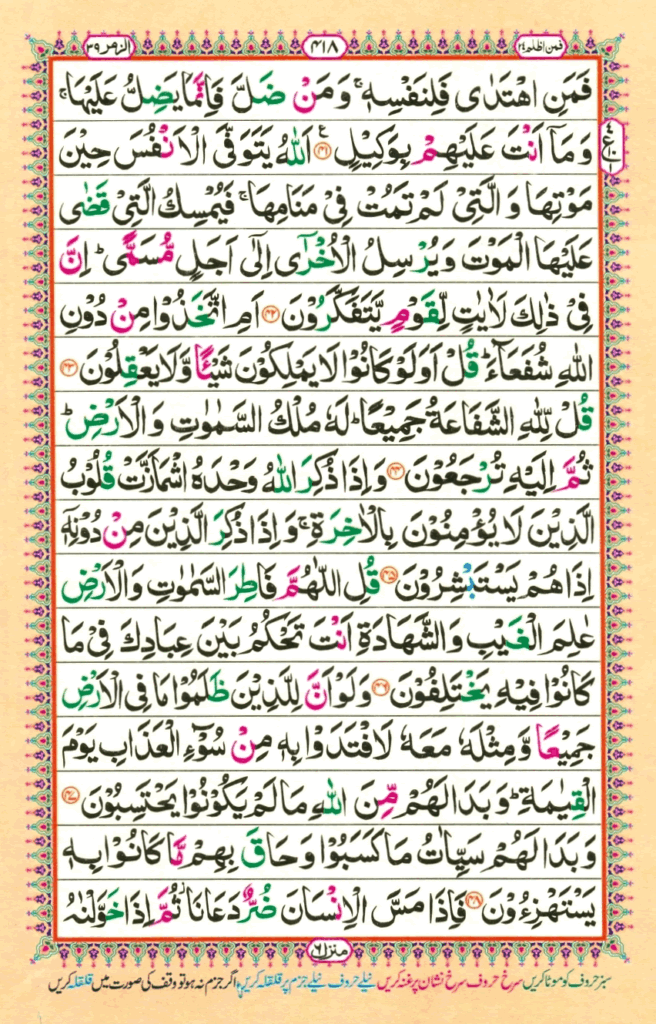 فمن اظلم ۲۴
۴۱۸
الزمر ۳۹
فَمَنِ اهْتَدٰى فَلِنَفْسِهٖ ۚ وَ مَنْ ضَلَّ فَاِنَّمَا يَضِلُّ عَلَيْهَا ۚ
وَ مَاۤ اَنْتَ عَلَيْهِمْ بِوَكِيْلٍ ﴿۴۱﴾ اَللّٰهُ يَتَوَفَّى الْاَنْفُسَ حِيْنَ
مَوْتِهَا وَ الَّتِيْ لَمْ تَمُتْ فِيْ مَنَامِهَا ۚ فَيُمْسِكُ الَّتِيْ قَضٰى
عَلَيْهَا الْمَوْتَ وَ يُرْسِلُ الْاُخْرٰۤى اِلٰۤى اَجَلٍ مُّسَمًّى ؕ اِنَّ
فِيْ ذٰلِكَ لَاٰيٰتٍ لِّقَوْمٍ يَّتَفَكَّرُوْنَ ﴿۴۲﴾ اَمِ اتَّخَذُوْا مِنْ دُوْنِ
اللّٰهِ شُفَعَآءَ ؕ قُلْ اَوَلَوْ كَانُوْا لَا يَمْلِكُوْنَ شَيْـًٔا وَّ لَا يَعْقِلُوْنَ ﴿۴۳﴾
قُلْ لِّلّٰهِ الشَّفَاعَةُ جَمِيْعًا ؕ لَهٗ مُلْكُ السَّمٰوٰتِ وَ الْاَرْضِ ؕ
ثُمَّ اِلَيْهِ تُرْجَعُوْنَ ﴿۴۴﴾ وَ اِذَا ذُكِرَ اللّٰهُ وَحْدَهُ اشْمَاَزَّتْ قُلُوْبُ
الَّذِيْنَ لَا يُؤْمِنُوْنَ بِالْاٰخِرَةِ ۚ وَ اِذَا ذُكِرَ الَّذِيْنَ مِنْ دُوْنِهٖۤ
اِذَا هُمْ يَسْتَبْشِرُوْنَ ﴿۴۵﴾ قُلِ اللّٰهُمَّ فَاطِرَ السَّمٰوٰتِ وَ الْاَرْضِ
عٰلِمَ الْغَيْبِ وَ الشَّهَادَةِ اَنْتَ تَحْكُمُ بَيْنَ عِبَادِكَ فِيْ مَا
كَانُوْا فِيْهِ يَخْتَلِفُوْنَ ﴿۴۶﴾ وَ لَوْ اَنَّ لِلَّذِيْنَ ظَلَمُوْا مَا فِي الْاَرْضِ
جَمِيْعًا وَّ مِثْلَهٗ مَعَهٗ لَافْتَدَوْا بِهٖ مِنْ سُوْٓءِ الْعَذَابِ يَوْمَ
الْقِيٰمَةِ ؕ وَ بَدَا لَهُمْ مِّنَ اللّٰهِ مَا لَمْ يَكُوْنُوْا يَحْتَسِبُوْنَ ﴿۴۷﴾
وَ بَدَا لَهُمْ سَيِّاٰتُ مَا كَسَبُوْا وَ حَاقَ بِهِمْ مَّا كَانُوْا بِهٖ
يَسْتَهْزِءُوْنَ ﴿۴۸﴾ فَاِذَا مَسَّ الْاِنْسَانَ ضُرٌّ دَعَانَا ؗ ثُمَّ اِذَا خَوَّلْنٰهُ
منزل ۶
سبز حروف کو موٹا کریں سرخ حروف سرخ نشان پر غنہ کریں نیلے حروف نیلے جزم پر قلقلہ کریں اگر جزم نہ ہو تو وقف کی صورت میں قلقلہ کریں